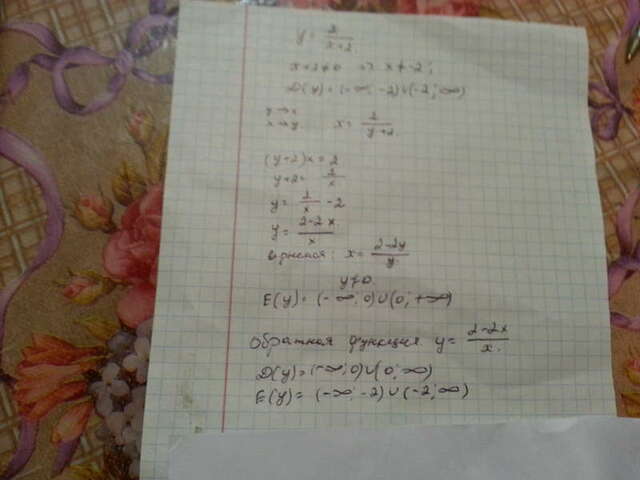 y = 2/(x+2)
x+2≠0 => x≠-2;
D(y) = (-∞; -2)∪(-2; ∞)
y→x
x→y x = 2/(y+2)
(y+2)x = 2
y+2 = 2/x
y = 2/x - 2
y = (2-2x)/x
x = (2-2y)/y
y≠0
E(y) = (-∞; 0)∪(0; +∞)
Обратная функция y = (2-2x)/x
D(y) = (-∞; 0)∪(0; ∞)
E(y) = (-∞; -2)∪(-2; ∞)